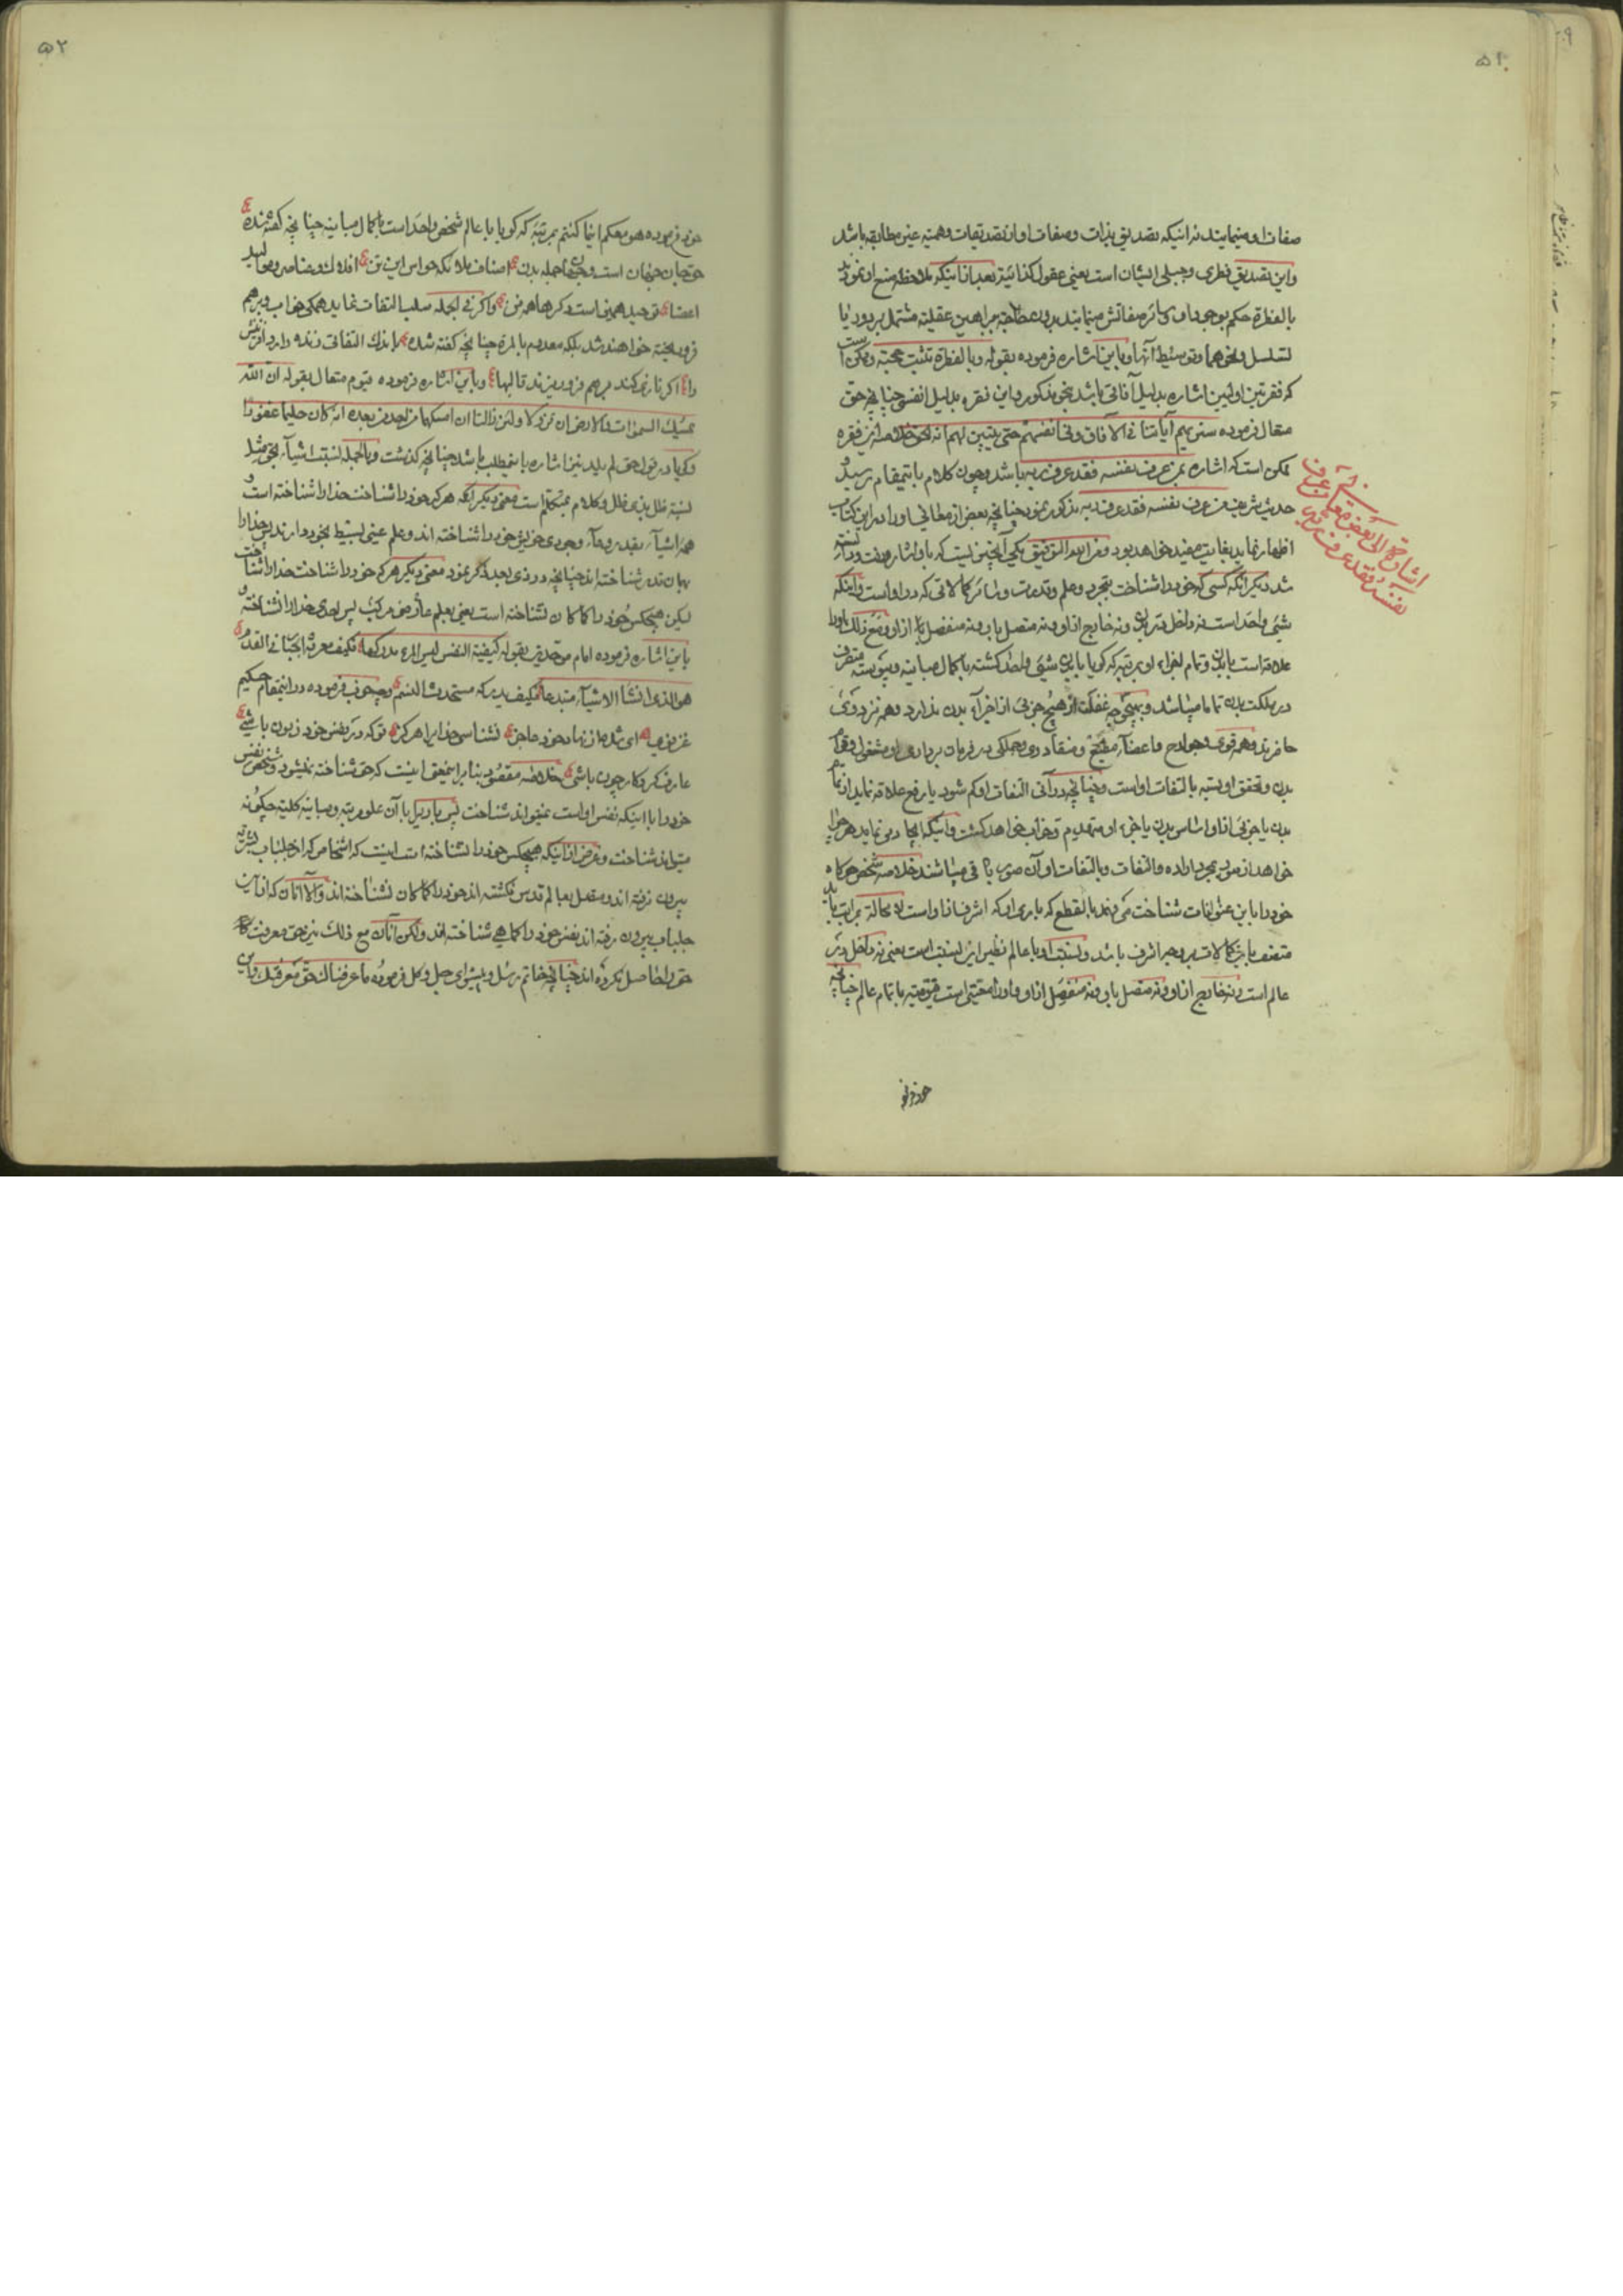 ۵۱
صفات او مینمایند نه اینکه تصدیق بذات و صفات او از تصدیقات وهمیه غیر مطابقه باشد
و این تصدیق فطری و جبلی ایشان است یعنی عقول بعد از اینکه ملاحظه صنع او نمودند
بالفطرة حکم بوجود او و سائر صفاتش مینمایند بدون ملاحظه براهین عقلیه مشتمل بر دور یا
تسلسل و نحو هما و توسیط آنها و باین اشاره فرموده بقوله و بالفطرة تثبت حجته و ممکن است
که فقرتین اولیین اشاره بدلیل آفاقی باشد بنحو مذکور و این فقره بدلیل انفسی چنانچه حق
متعال فرموده سنریهم آیاتنا فی الآفاق و فی انفسهم حتی یتبین لهم انه الحق خلاصه از این فقره
ممکن است که اشاره بمن عرف نفسه فقد عرف ربه باشد و چون کلام باینمقام رسید و
حدیث شریف من عرف نفسه فقد عرف ربه مذکور نمود چنانچه بعض از معانی او را در این کتاب
اظهار نماید بغایت مفید خواهد بود و من الله التوفیق یکی آنچنین نیست که باو اشاره رفت و دانسته
شد دیگر انکه کسی که خود را شناخت بتجرد و علم و قدرت و سائر کمالاتی که در او است و اینکه
شیئی واحد است نه داخل در بدن و نه خارج از او و نه متصل باو و نه منفصل از او و مع ذلک او را
علاقه است بابدن و تمام اجزاء او بمرتبه که گویا بابدن شیئی واحد گشته با کمال مباینه و پیوسته متصرف
در مملکت بدن تماما میباشد و بهیچوجه غفلت از هیچ جزئی از اجزآء بدن ندارد و همه نزد وی
حاضرند و همه قوی و جوارح و اعضآء مطیع و منقاد وی و جملگی در فرمان برداری او مشغول و قوام
بدن و تحقق او بسته بالتفات او است و چنانچه در آنی التفات او کم شود یا رفع علاقه نماید از تمام
بدن یا جزئی از او اساس بدن یا جزء او منهدم و خراب خواهد گشت و اینکه ایجاد می نماید هر چه را
خواهد از صور بمجرد اراده و التفات و بالتفات او آن صور باقی میباشند خلاصه شخص هرگاه
خود را باین عنوانات شناخت می داند بالقطع که باری او که اشرف از او است لا محاله مراتب باید
متصف باین کمالات بر وجه اشرف باشد و نسبت او با عالم نظیر این نسبت است یعنی نه داخل در
عالم است و نه خارج از او و نه متصل باو و نه منفصل از او و او را معیتی است قیومیه با تمام عالم چنانچه
خود فر
اشارة الی بعض معانی من عرف
نفسه فقد عرف ربه
۵۲
خود فرموده هو معکم اینما کنتم بمرتبه که گویا با عالم شخص واحد است با کمال مباینه چنانچه گفته شده
حق جان جهان است و جهان جمله بدن اصناف ملائکه حواس این تن افلاک و عناصر و موالید
اعضا توحید همین است و دگرها همه فن و اگر فی الجمله سلب التفات نماید همگی خراب و درهم
فرو ریخته خواهند شد بلکه معدوم بالمرة چنانچه گفته شده باندک التفاتی زنده دارد آفرینش
را اگر نازی کند درهم فرو ریزند قالبها و باین اشاره فرموده قیوم متعال بقوله ان الله
یمسک السموات و الارض ان تزولا و لئن زالتا ان امسکهما من احد من بعده انه کان حلیما غفورا
و گویا در قول حق لم یلد نیز اشاره باینمطلب باشد چنانچه گذشت و بالجمله نسبت اشیآء بحق مثل
نسبة ظل بذی ظل و کلام بمتکلم است معنی دیگر آنکه هر که خود را شناخت خدا را شناخته است و
همه اشیآء بقدر وعآء وجودی خویش خود را شناخته اند و علم عینی بسیط بخود دارند پس خدا را
بهمان قدر شناخته اند چنانچه در ذی بعد ذکر نمود معنی دیگر هر که خود را شناخت خدا را شناخت
لیکن هیچکس خود را کما کان نشناخته است یعنی بعلم عارضی مرکب پس احدی خدا را نشناخته و
باین اشاره فرموده امام موحدین بقوله کیفیة النفس لیس المرء یدرکها فکیف معرفة الجبار فی القدم
هو الذی انشأ الاشیآء مبتدعا فکیف یدرکه مستحدث النسم و چه خوب فرموده در اینمقام حکیم
غزنوی ای شده از نهاد خود عاجز نشناسی خدا یرا هرگز تو که در نفس خود زبون باشی
عارف کردگار چون باشی خلاصه مقصود بنابر اینمعنی اینست که حق شناخته نمیشود و شخص نفس
خود را با اینکه نفس او است نمیتواند شناخت پس باریرا با آن علو مرتبه و مباینه کلیه چگونه
میتواند شناخت و غرض از اینکه هیچکس خود را نشناخته است اینست که اشخاص که از جلباب بشریه
بیرون نرفته اند و متصل بعالم قدس نگشته اند خود را کما کان نشناخته اند و الا آنان که از این
جلباب بیرون رفته اند نفس خود را کما هی شناخته اند و لکن آنان مع ذلک نیز حق معرفت
حق را حاصل نکرده اند چنانچه خاتم رسل و پیشوای جمل و کل فرموده ما عرفناک حق معرفتک